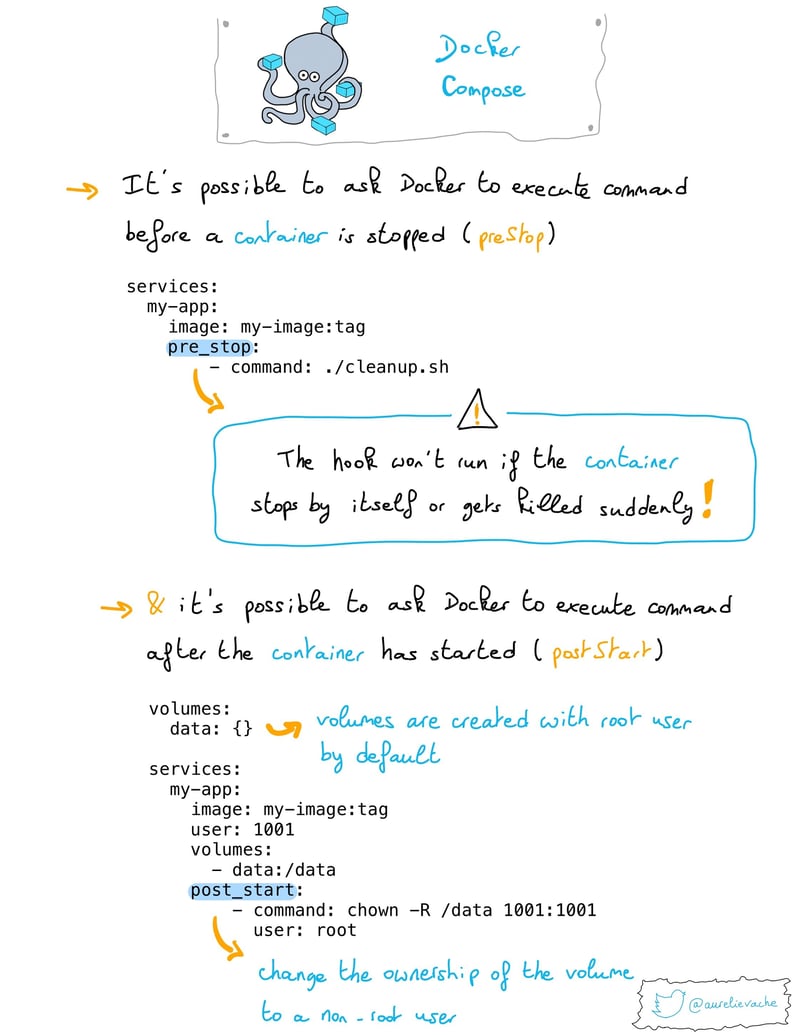 Docker
Compose
→ It's possible to ask Docker to execute command
before a container is stopped (preStop)
services:
  my-app:
    image: my-image:tag
    pre_stop:
        - command: ./cleanup.sh
!
The hook won't run if the container
stops by itself or gets killed suddenly!
→ & it's possible to ask Docker to execute command
after the container has started (postStart)
volumes:
  data: {}
volumes are created with root user
by default
services:
  my-app:
    image: my-image:tag
    user: 1001
    volumes:
      - data:/data
    post_start:
        - command: chown -R /data 1001:1001
          user: root
change the ownership of the volume
to a non-root user
@aurelievache